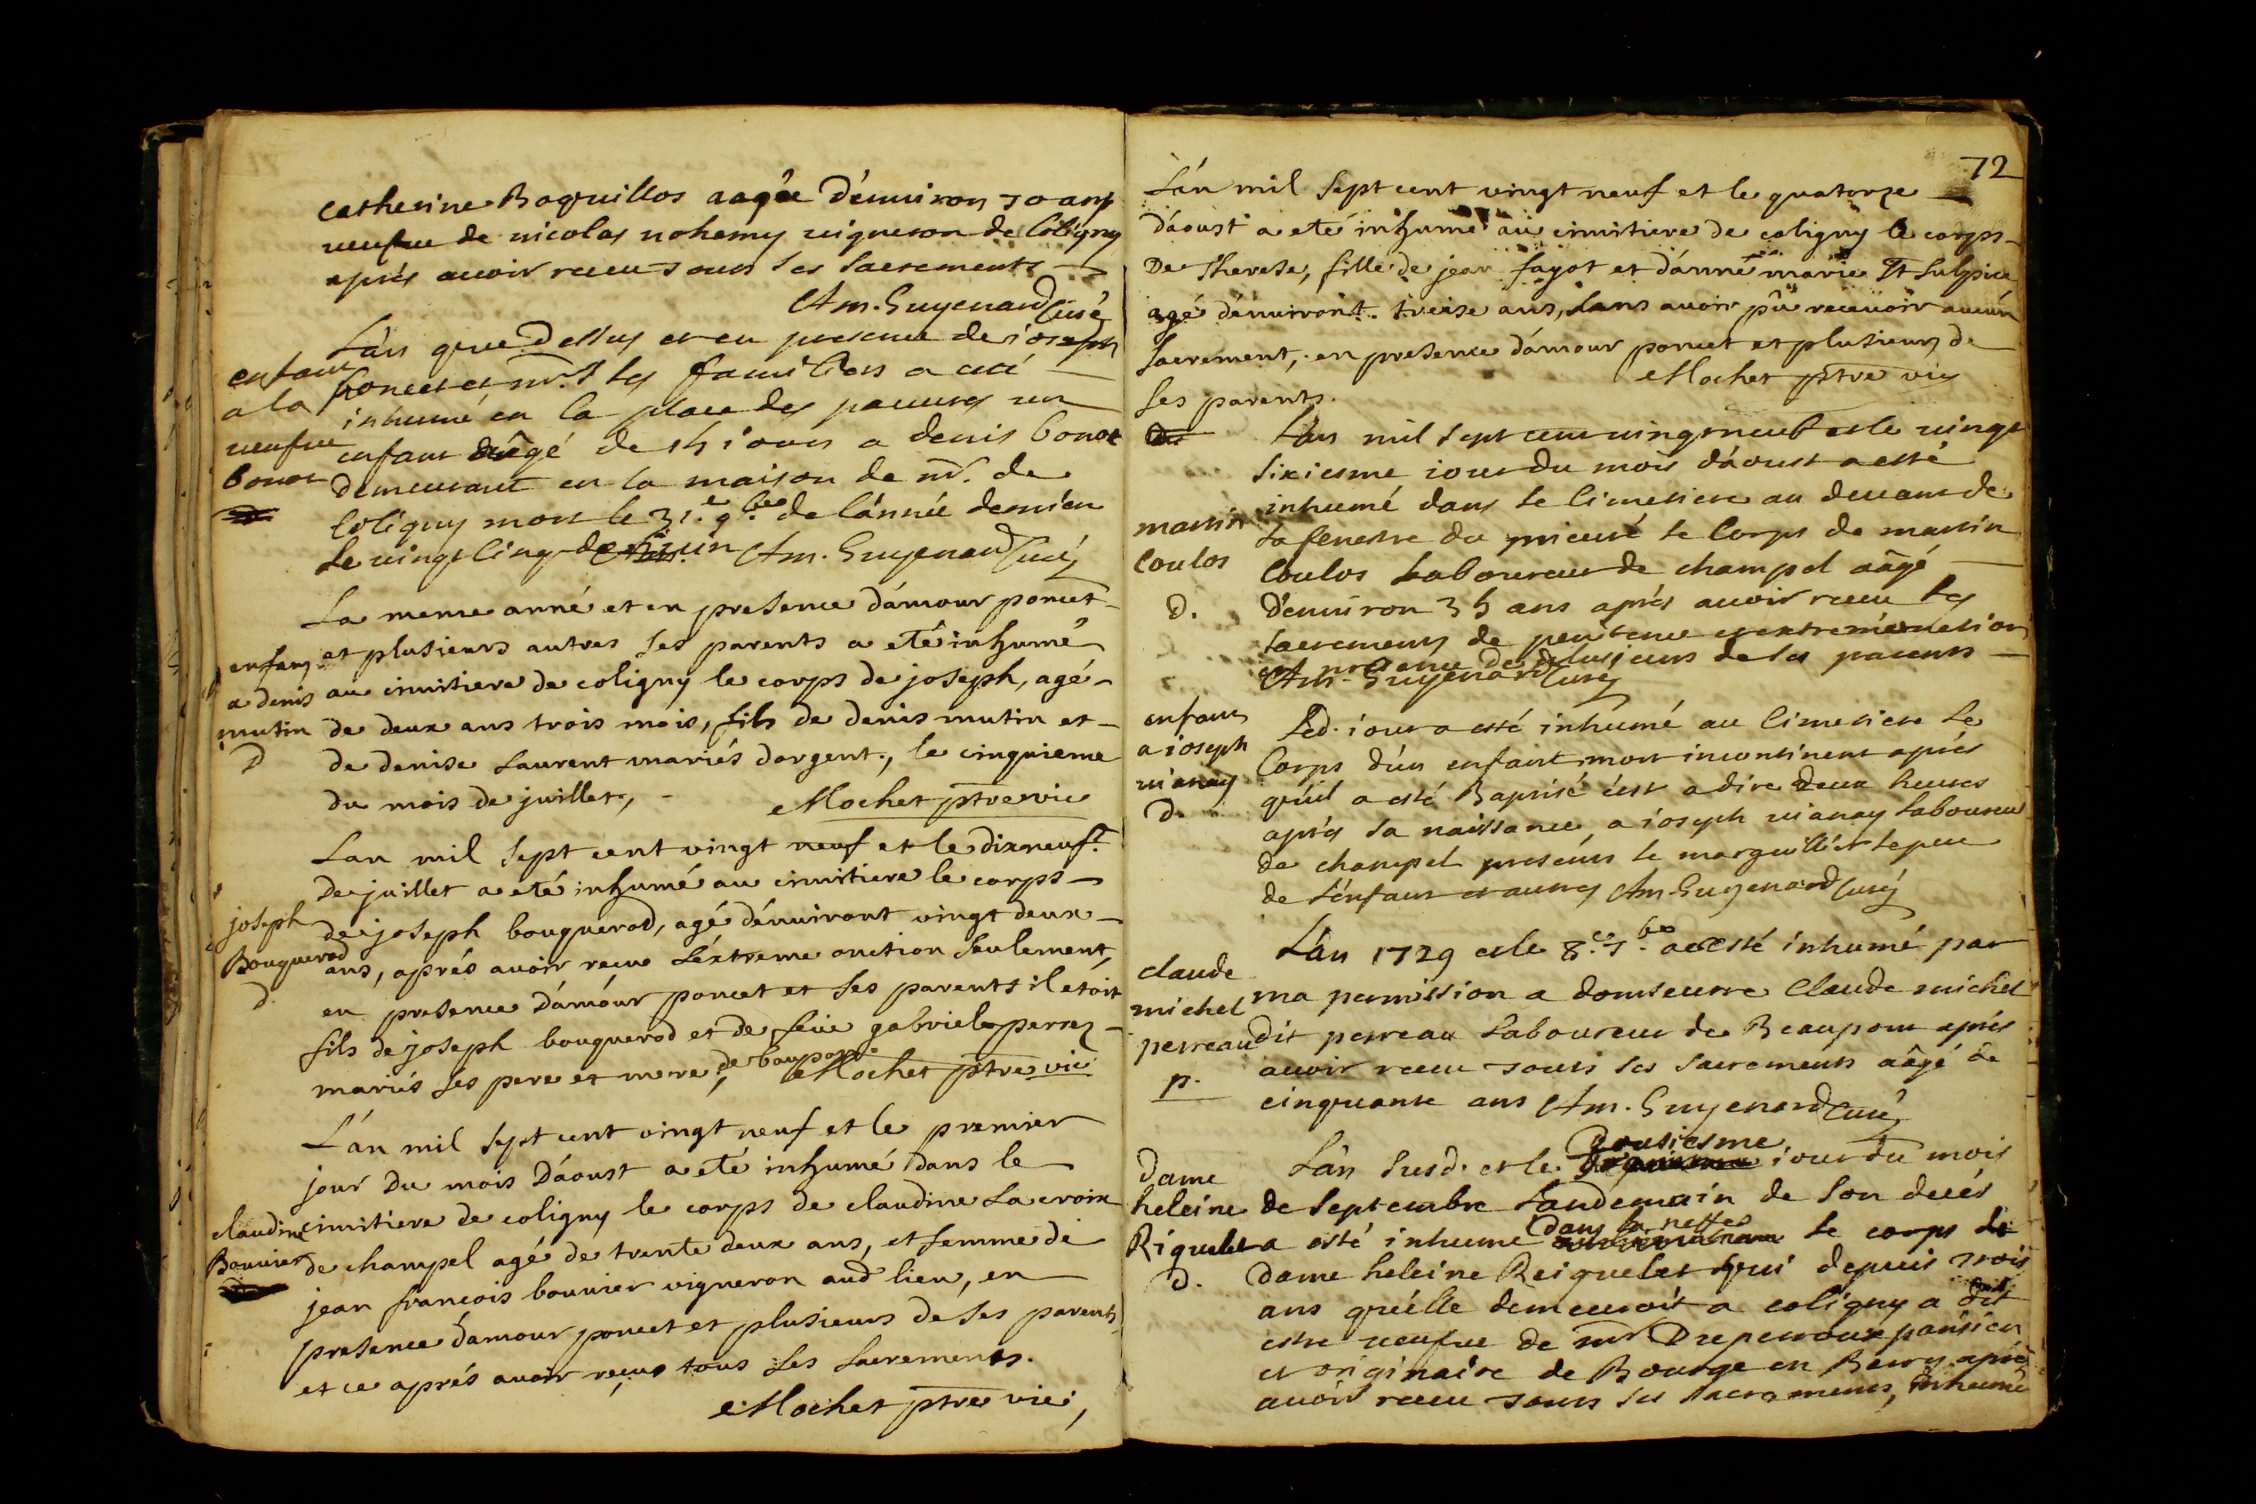 catherine Boquillos aagée d'enuiron 70 ans
veufue de nicolas nohemy uigneron de Coligny
aprés auoir receu tous ses sacrements
Am. Guyenard Curé
L'an que dessus et en presence de ioseph
enfant poncet et mrs. les familiers a eté
a la inhumé en la place des pauures un
veufue enfant aâgé de 15 iours a denis bonot
bonot demeurant en la maison de mr. de
Coligny mort le 31.e 9.bre de l'année derniere
le uingt cinq de iuin Am. Guyenard Curé
La meme anné et en presence d'amour poncet
enfans et plusieurs autres ses parents a eté inhumé
a denis au cimitiere de coligny le corps de joseph, agé
mutin de deux ans trois mois, fils de denis mutin et
D de denise Laurent mariés dargent, le cinquieme
du mois de juillet, Mochet ptre vic
Lan mil sept cent vingt neuf et le dixneuf.
De juillet a eté inhumé au cimitiere le corps
joseph de joseph bouquerod, agé d'enuiront vingt deux
Bouquerod ans, aprés avoir reçue L'extreme onction seulement,
d. en presence D'amour poncet et ses parents il etoit
fils de joseph bouquerod et de feüe gabriele perrez
mariés ses pere et mere, de baupont Mochet ptre vic
L'an mil sept cent vingt neuf et le premier
jour Du mois D'aoust a eté inhumé Dans le
claudine cimitiere de coligny le corps de claudine La croix
Bouuier de champel agé de trente deux ans, et femme de
jean francois bouuier vigneron aud lieu, en
presence d'amour poncet et plusieurs de ses parents
et ce aprés avoir reçue tous Les sacrements.
Mochet ptre vic,
72
L'an mil sept cent vingt neuf et le quatorze
D'aoust a eté inhumé au cimitiere de coligny le corps
De Therese, fille de jean fayot et d'anne marie St Sulpice
agé d'enuiront treise ans, sans avoir pû receuoir aucun
sacrement, en presence d'amour poncet et plusieurs de
ses parents. Mochet ptre vic
L'an mil sept cent uingt neuf et le uingt
sixiesme iour du mois d'aoust a esté
inhumé dans le Cimetiere au deuant de
martin la fenestre du prieuré le Corps de martin
Coulos Coulos Laboureur de champel aâgé
d. D'enuiron 35 ans aprés auoir receu les
sacrements de penitence et extreme onction
en presence de plusieurs de ses parents
Am. Guyenard Curé
enfant Led. iour a esté inhumé au Cimetiere Le
a ioseph Corps d'un enfant mort incontinent aprés
uianay qu'il a esté Baptisé c'est a dire deux heures
D. aprés sa naissance, a ioseph uianay Laboureur
de champel presents le marguillier le pere
de L'enfant et autres Am. Guyenard Curé
L'an 1729 et le 8.e 7.bre a esté inhumé par
claude
michel ma permission a domseurre Claude michel
perreau dit perreau Laboureur de Beaupont aprés
p. auoir receu tous les sacrements aâgé de
cinquante ans Am. Guyenard Curé
Dousiesme
Dame L'an susd. et le iour du mois
heleine de septembre Landemain de son decés
Riquelet a esté inhume dans la neffe le corps de
d. Dame heleine Reiquelet qui depuis trois
ans qu'elle demeuroit a coligny a dit
estre ueufue de mr Dreperroux parisien
et originaire de Bourge en Berry aprés
auoir receu tous ses sacrements, inhumé